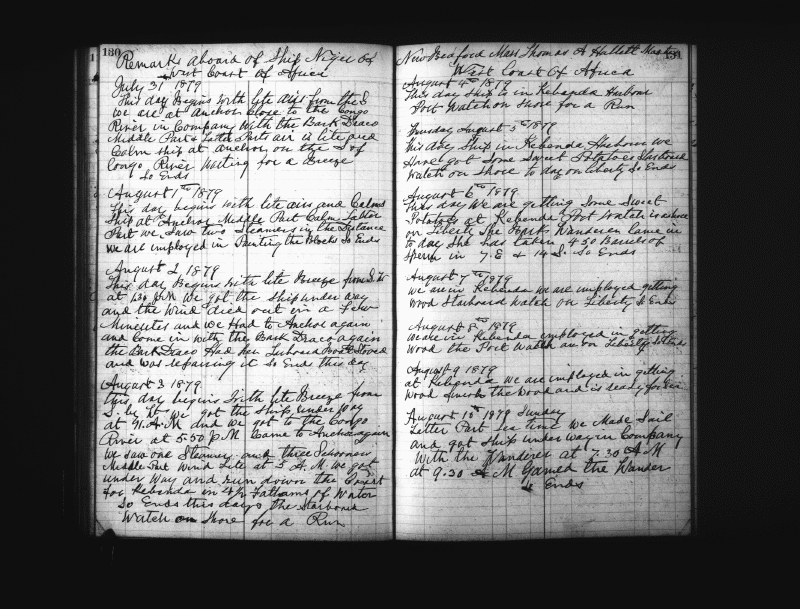 130
Remarks aboard of Ship Niger of
West Coast of Africa
July 31 1879
This day Begins with lite airs from the S
we are at anchor close to the Congo
River in Company with the Bark Draco
Middle Part & Latter Parts air is lite and
Calm ship at anchor on the S of
Congo River Waiting for a Breeze
So Ends
August 1th 1879
This day begins with lite airs and Calms
Ship at Anchor Middle Part Calms Latter
Part we saw two Steamers in the Distance
we are imployed in Painting the Blocks So Ends
August 2 1879
This day Begins with lite Breeze from S. W
at 1.30 P.M we got the ship under way
and the wind died out in a few
Minuetes and we Had to Anchor again
and Come in with the Bark Draco again
the Bark Draco Had her Larboard Boat Stoved
and was repairing it So Ends this day
August 3 1879
this day begins with lite Breeze from
S. by W we got the ship under way
at 9. A.M and we got to the Congo
River at 5.50 P.M Came to Anchor again
we saw one Steamer and three Schooners
Middle Part Wind Lite at 5 A.M. we got
under Way and run down the Coast
for Kebenda in 4½ Fathams of Water
So Ends this day the Starboard
Watch on Shore for a Run
New Bedford Mass Thomas A Hallett Master
131
West Coast of Africa
August 4th 18
This day Ship is in Kebenda Harbour
Port Watch on Shore for a Run
Tuesday August 5th 1879
This day Ship in Kebenda Harbour we
Have got Some Sweet Potatoes Starboard
Watch on Shore to day on Liberty So Ends
August 6th 1879
This day We are getting Some Sweet
Potatoes at Kebenda Port Watch is ashore
on Liberty The Bark Wanderer Came in
to day She has taken 450 Barrels of
Sperm in 7. E & 14 S. So Ends
August 7th 1879
we are in Kebenda we are imployed getting
Wood Starboard Watch on Liberty So Ends
August 8th 1879
we are in Kebenda employed in getting
Wood the Port Watch are on Liberty So Ends
August 9 1879
at Kebenda we are imployed in getting
Wood finish the Wood and is ready for
August 10th 1879 Sunday
Letter Part Sea time we Made Sail
and got ship under way in Company
With the Wanderer at 7.30 A M
at 9.30 A M Gamed the Wander
So Ends